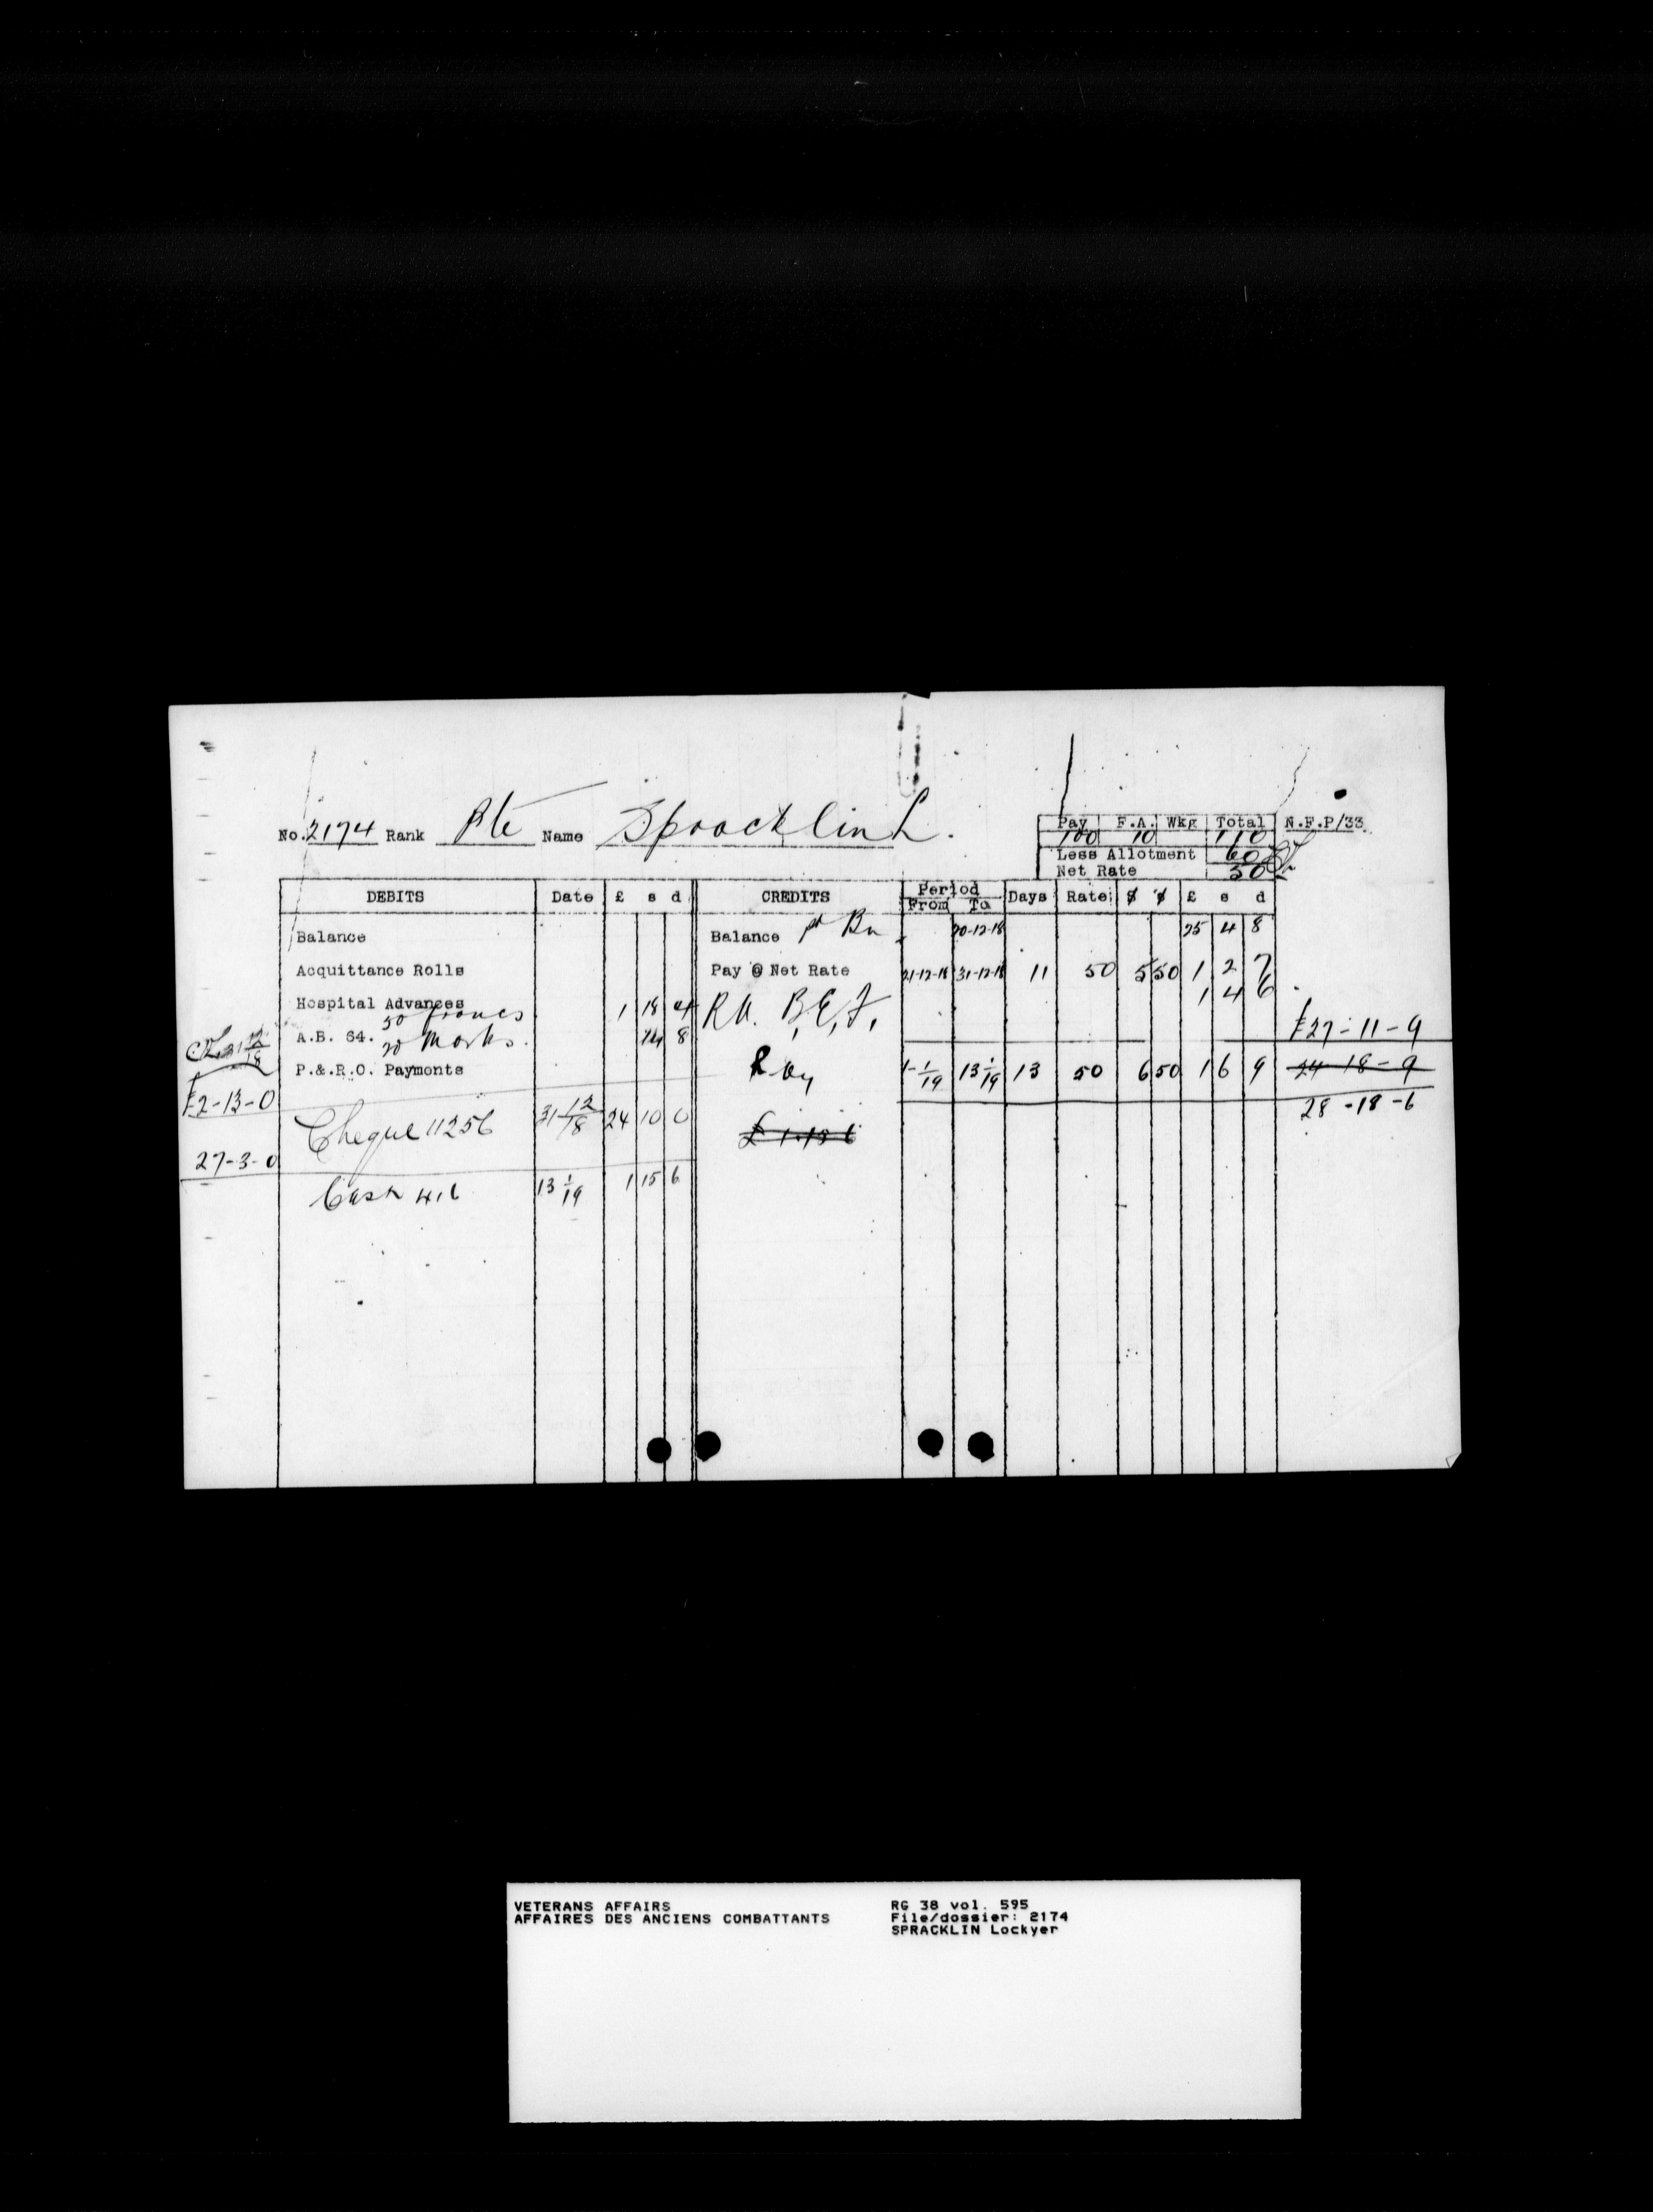 No. 2174 Rank Pte Name Spracklin L.
Pay F.A. Wkg Total N.F.P/33
100 10 110
Less Allotment 60
Net Rate 50
DEBITS Date £ s d CREDITS Period From To Days Rate $ ¢ £ s d
Balance Balance pr Bn 20-12-18 25 4 8
Acquittance Rolls Pay @ Net Rate 21-12-18 31-12-18 11 50 5 50 1 2 7
Hospital Advances R.A. B.E.F. 1 4 6
50 Francs 1 18 4
A.B. 64. 20 Marks. 14 8
£27-11-9
31 12/18
P.&.R.O. Payments Pay 1-1/19 13 1/19 13 50 6 50 1 6 9 24-18-9
£2-13-0 28-18-6
Cheque 11256 31 12/18 24 10 0 £1-15-6
27-3-0
Cash 13 1/19 1 15 6
VETERANS AFFAIRS RG 38 vol. 595
AFFAIRES DES ANCIENS COMBATTANTS File/dossier: 2174
SPRACKLIN Lockyer